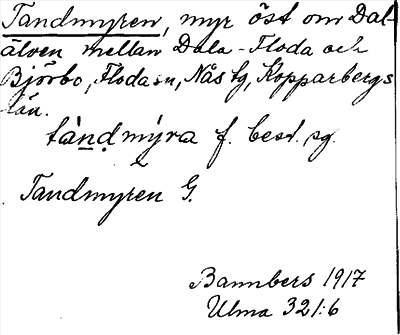 Tandmyren, myr öst om Dal-
älven mellan Dala-Floda och
Björbo, Floda sn, Nås tg, Kopparbergs
län.
tàn̲ḍmy̆ra f. best. sg.
Tandmyren G.
Bannbers 1917
Ulma 321:6